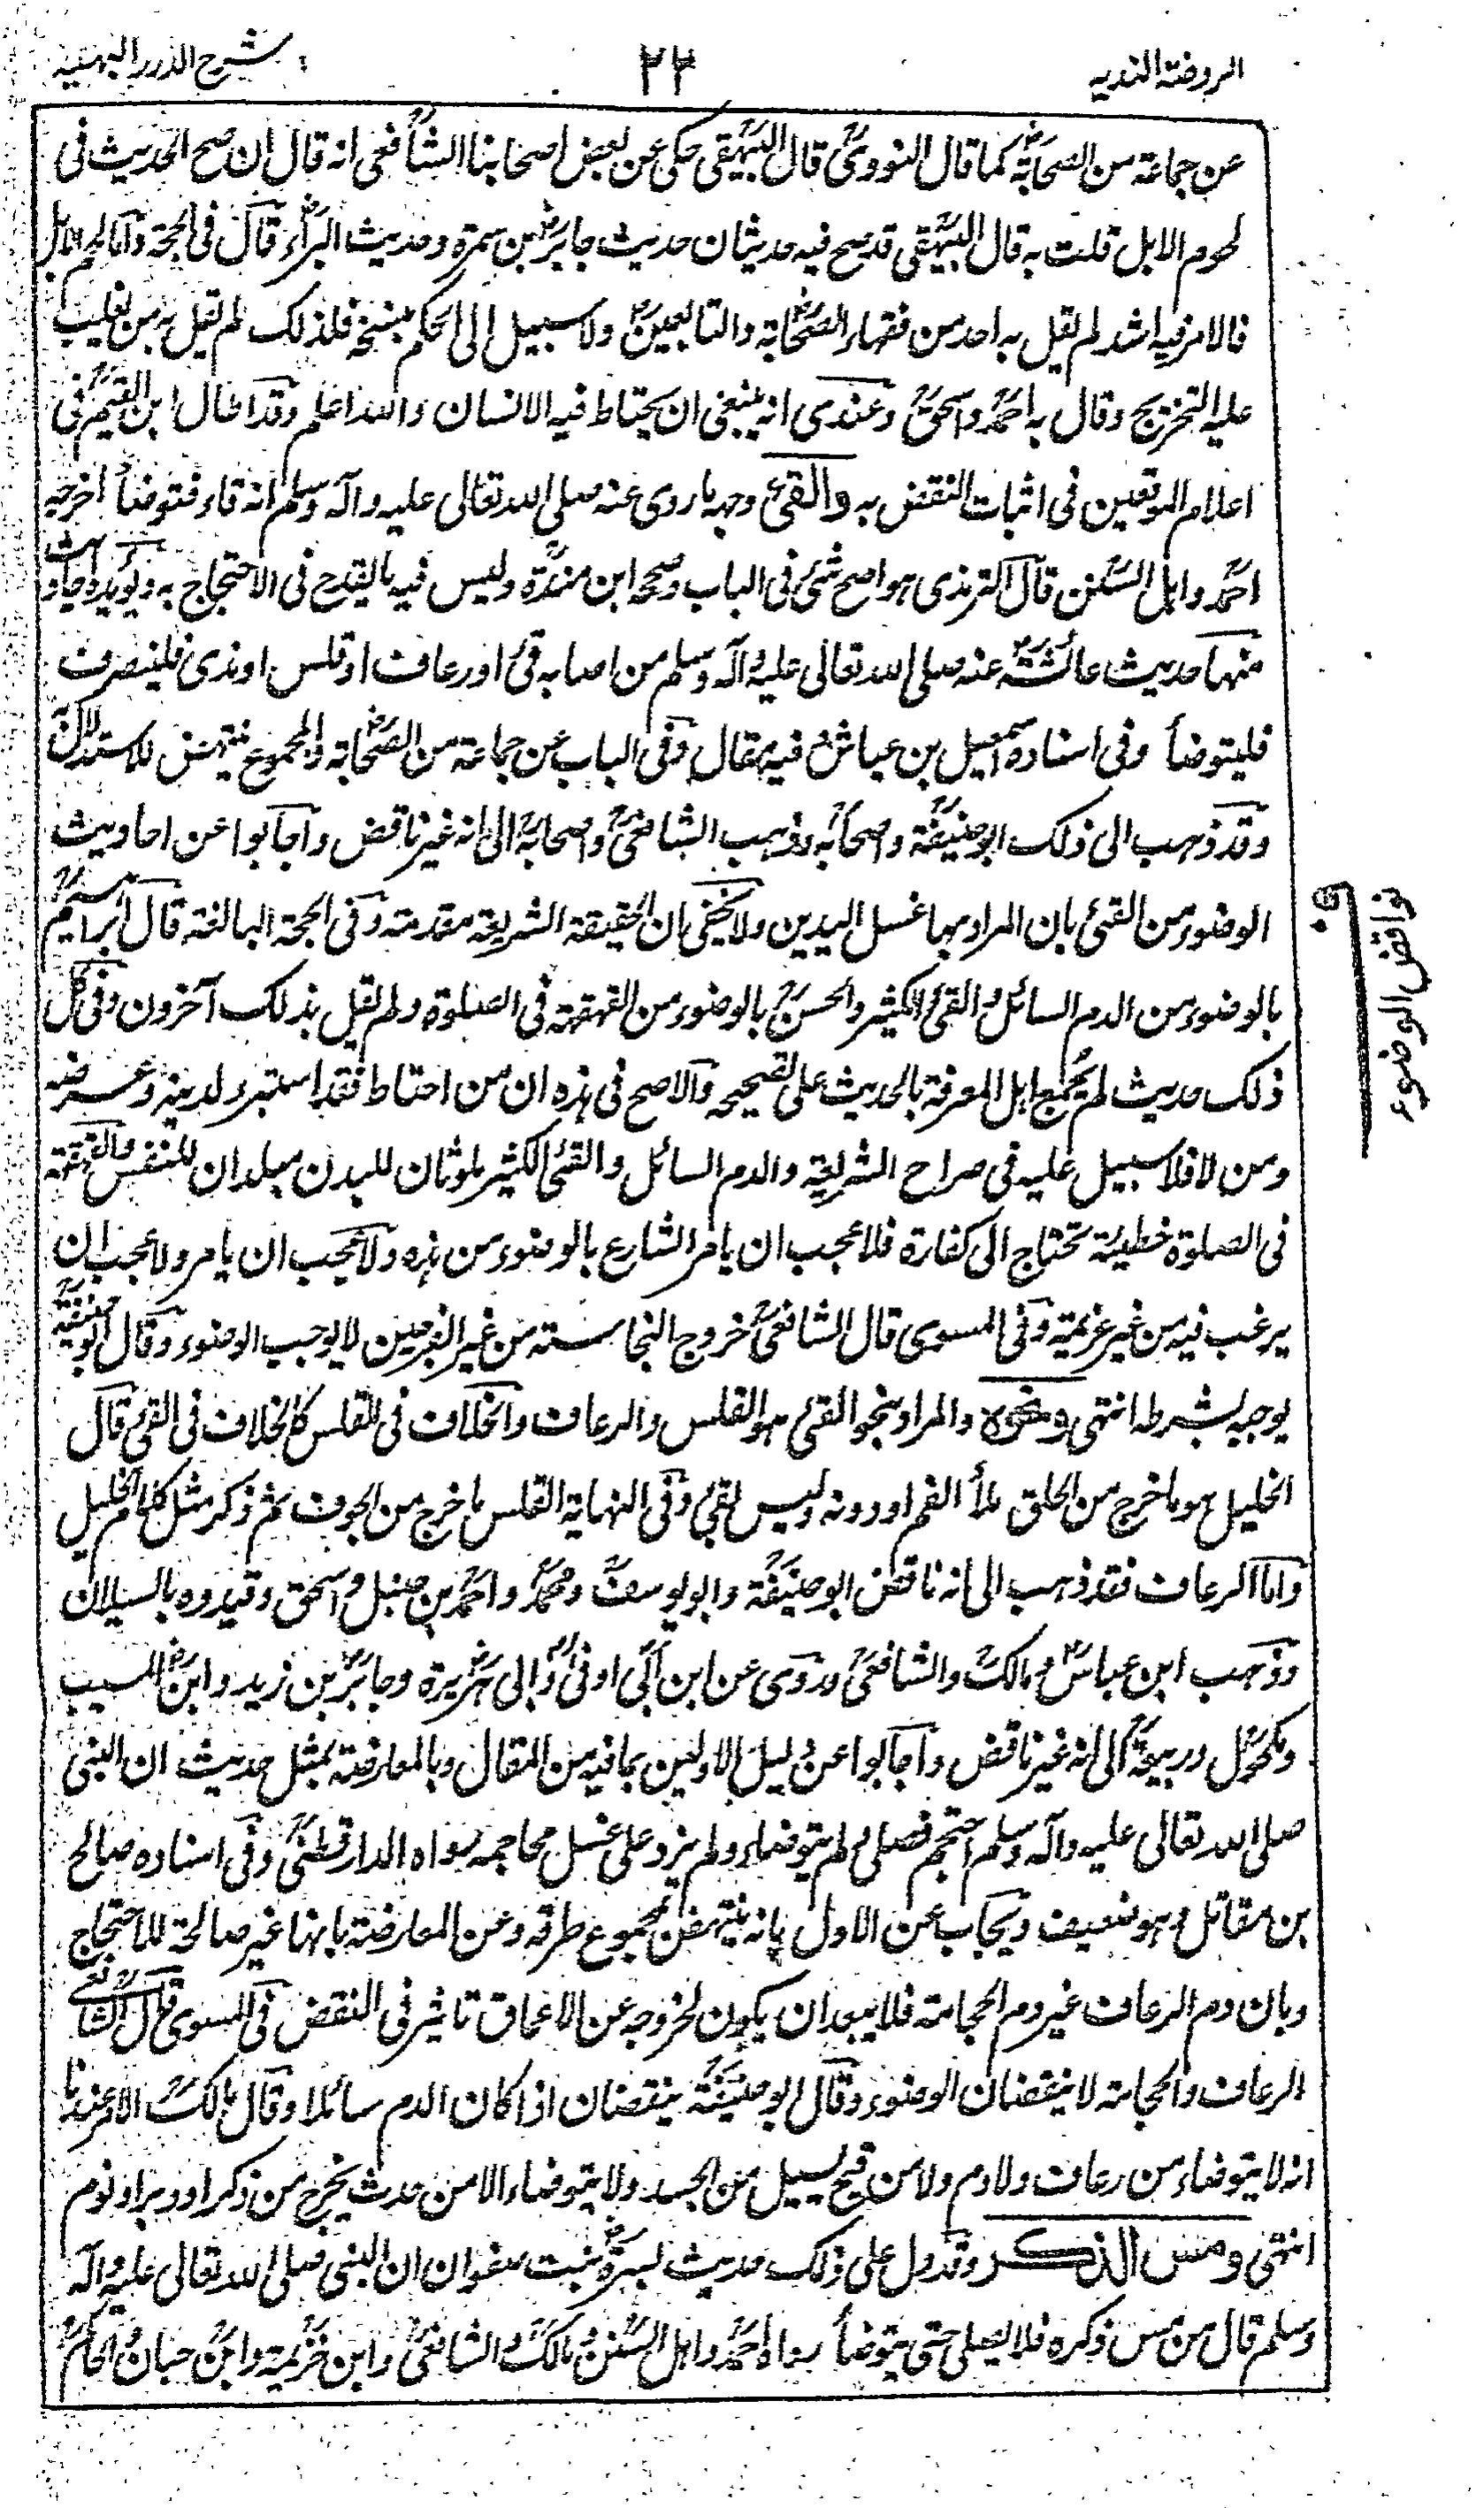 الروضة الندیه
۲۲
شرح الدرر البهیة
عن جماعة من الصحابة كما قال النووي قال البيهقي حكى عن بعض اصحابنا الشافعي انه قال ان صح الحديث في
لحوم الابل قلت به قال البيهقي قد صح فيه حديثان حديث جابر بن سمرة وحديث البراء قال في الحجة واما لحم الابل
فالامر فيه اشد لم يقل به احد من فقهاء الصحابة والتابعين ولا سبيل الى الحكم بنسخه فلذلك لم يقل به من يغلب
عليه التخريج وقال به احمد واسحق وعندي انه ينبغي ان يحتاط فيه الانسان والله اعلم وقد اطال ابن القيم في
اعلام الموقعين في اثبات النقض به والقئ وجه ما روى عنه صلى الله تعالى عليه وآله وسلم انه قاء فتوضأ اخرجه
احمد واهل السنن قال الترمذي هو اصح شئ في الباب وصححه ابن مندة وليس فيه ما يقدح في الاحتجاج به ويؤيده احاديث
منها حديث عائشة عنه صلى الله تعالى عليه وآله وسلم من اصابه قئ او رعاف او قلس او مذى فلينصرف
فليتوضأ وفي اسناده اسمعيل بن عياش وفيه مقال وفي الباب عن جماعة من الصحابة والمجموع ينتهض للاستدلال
وقد ذهب الى ذلك ابو حنيفة واصحابه وذهب الشافعي واصحابه الى انه غير ناقض واجابوا عن احاديث
الوضوء من القئ بان المراد بها غسل اليدين ولا يخفى ان الحقيقة الشرعية مقدمة وفي الحجة البالغة قال ابراهيم
بالوضوء من الدم السائل والقئ الكثير والحسن بالوضوء من القهقهة في الصلوة ولم يقل بذلك آخرون وفي كل
ذلك حديث لم يجمع اهل المعرفة بالحديث على تصحيحه والاصح في هذه ان من احتاط فقد استبرء لدينه وعرضه
ومن لا فلا سبيل عليه في صراح الشريعة والدم السائل والقئ الكثير ملوثان للبدن مبلدان للنفس والقهقهة
في الصلوة خطيئة تحتاج الى كفارة فلا عجب ان يامر الشارع بالوضوء من هذه ولا عجب ان يامر ولا عجب ان
يرغب فيه من غير عزيمة وفي المسوى قال الشافعي خروج النجاسة من غير الفرجين لا يوجب الوضوء وقال ابو حنيفة
يوجبه بشرطه انتهى ونحوه والمراد بنحو القئ هو القلس والرعاف والخلاف في القلس كالخلاف في القئ قال
الخليل هو ما خرج من الحلق ملأ الفم او دونه وليس بقئ وفي النهاية القلس ما خرج من الجوف ثم ذكر مثل كلام الخليل
واما الرعاف فقد ذهب الى انه ناقض ابو حنيفة وابو يوسف ومحمد واحمد بن حنبل واسحق وقيدوه بالسيلان
وذهب ابن عباس ومالك والشافعي وروى عن ابن ابي اوفى وابي هريرة وجابر بن زيد وابن المسيب
ومكحول وربيعة الى انه غير ناقض واجابوا عن دليل الاولين بما فيه من المقال وبالمعارضة بمثل حديث ان النبي
صلى الله تعالى عليه وآله وسلم احتجم فصلى ولم يتوضاء ولم يزد على غسل محاجمه رواه الدارقطني وفي اسناده صالح
بن مقاتل وهو ضعيف ويجاب عن الاول بانه ينتهض بمجموع طرقه وعن المعارضة بانها غير صالحة للاحتجاج
وبان دم الرعاف غير دم الحجامة فلا يبعد ان يكون لخروجه عن الاعماق تاثير في النقض في المسوى قال الشافعي
الرعاف والحجامة لا ينقضان الوضوء وقال ابو حنيفة ينقضان اذا كان الدم سائلا وقال مالك الامر عندنا
انه لا يتوضاء من رعاف ولا دم ولا من قيح يسيل من الجسد ولا يتوضاء الا من حدث يخرج من ذكر او دبر او نوم
انتهى ومس الذكر وقد دل على ذلك حديث بسرة بنت صفوان ان النبي صلى الله تعالى عليه وآله
وسلم قال من مس ذكره فلا يصلى حتى يتوضأ رواه احمد واهل السنن ومالك والشافعي وابن خزيمة وابن حبان والحاكم
نواقض الوضوء